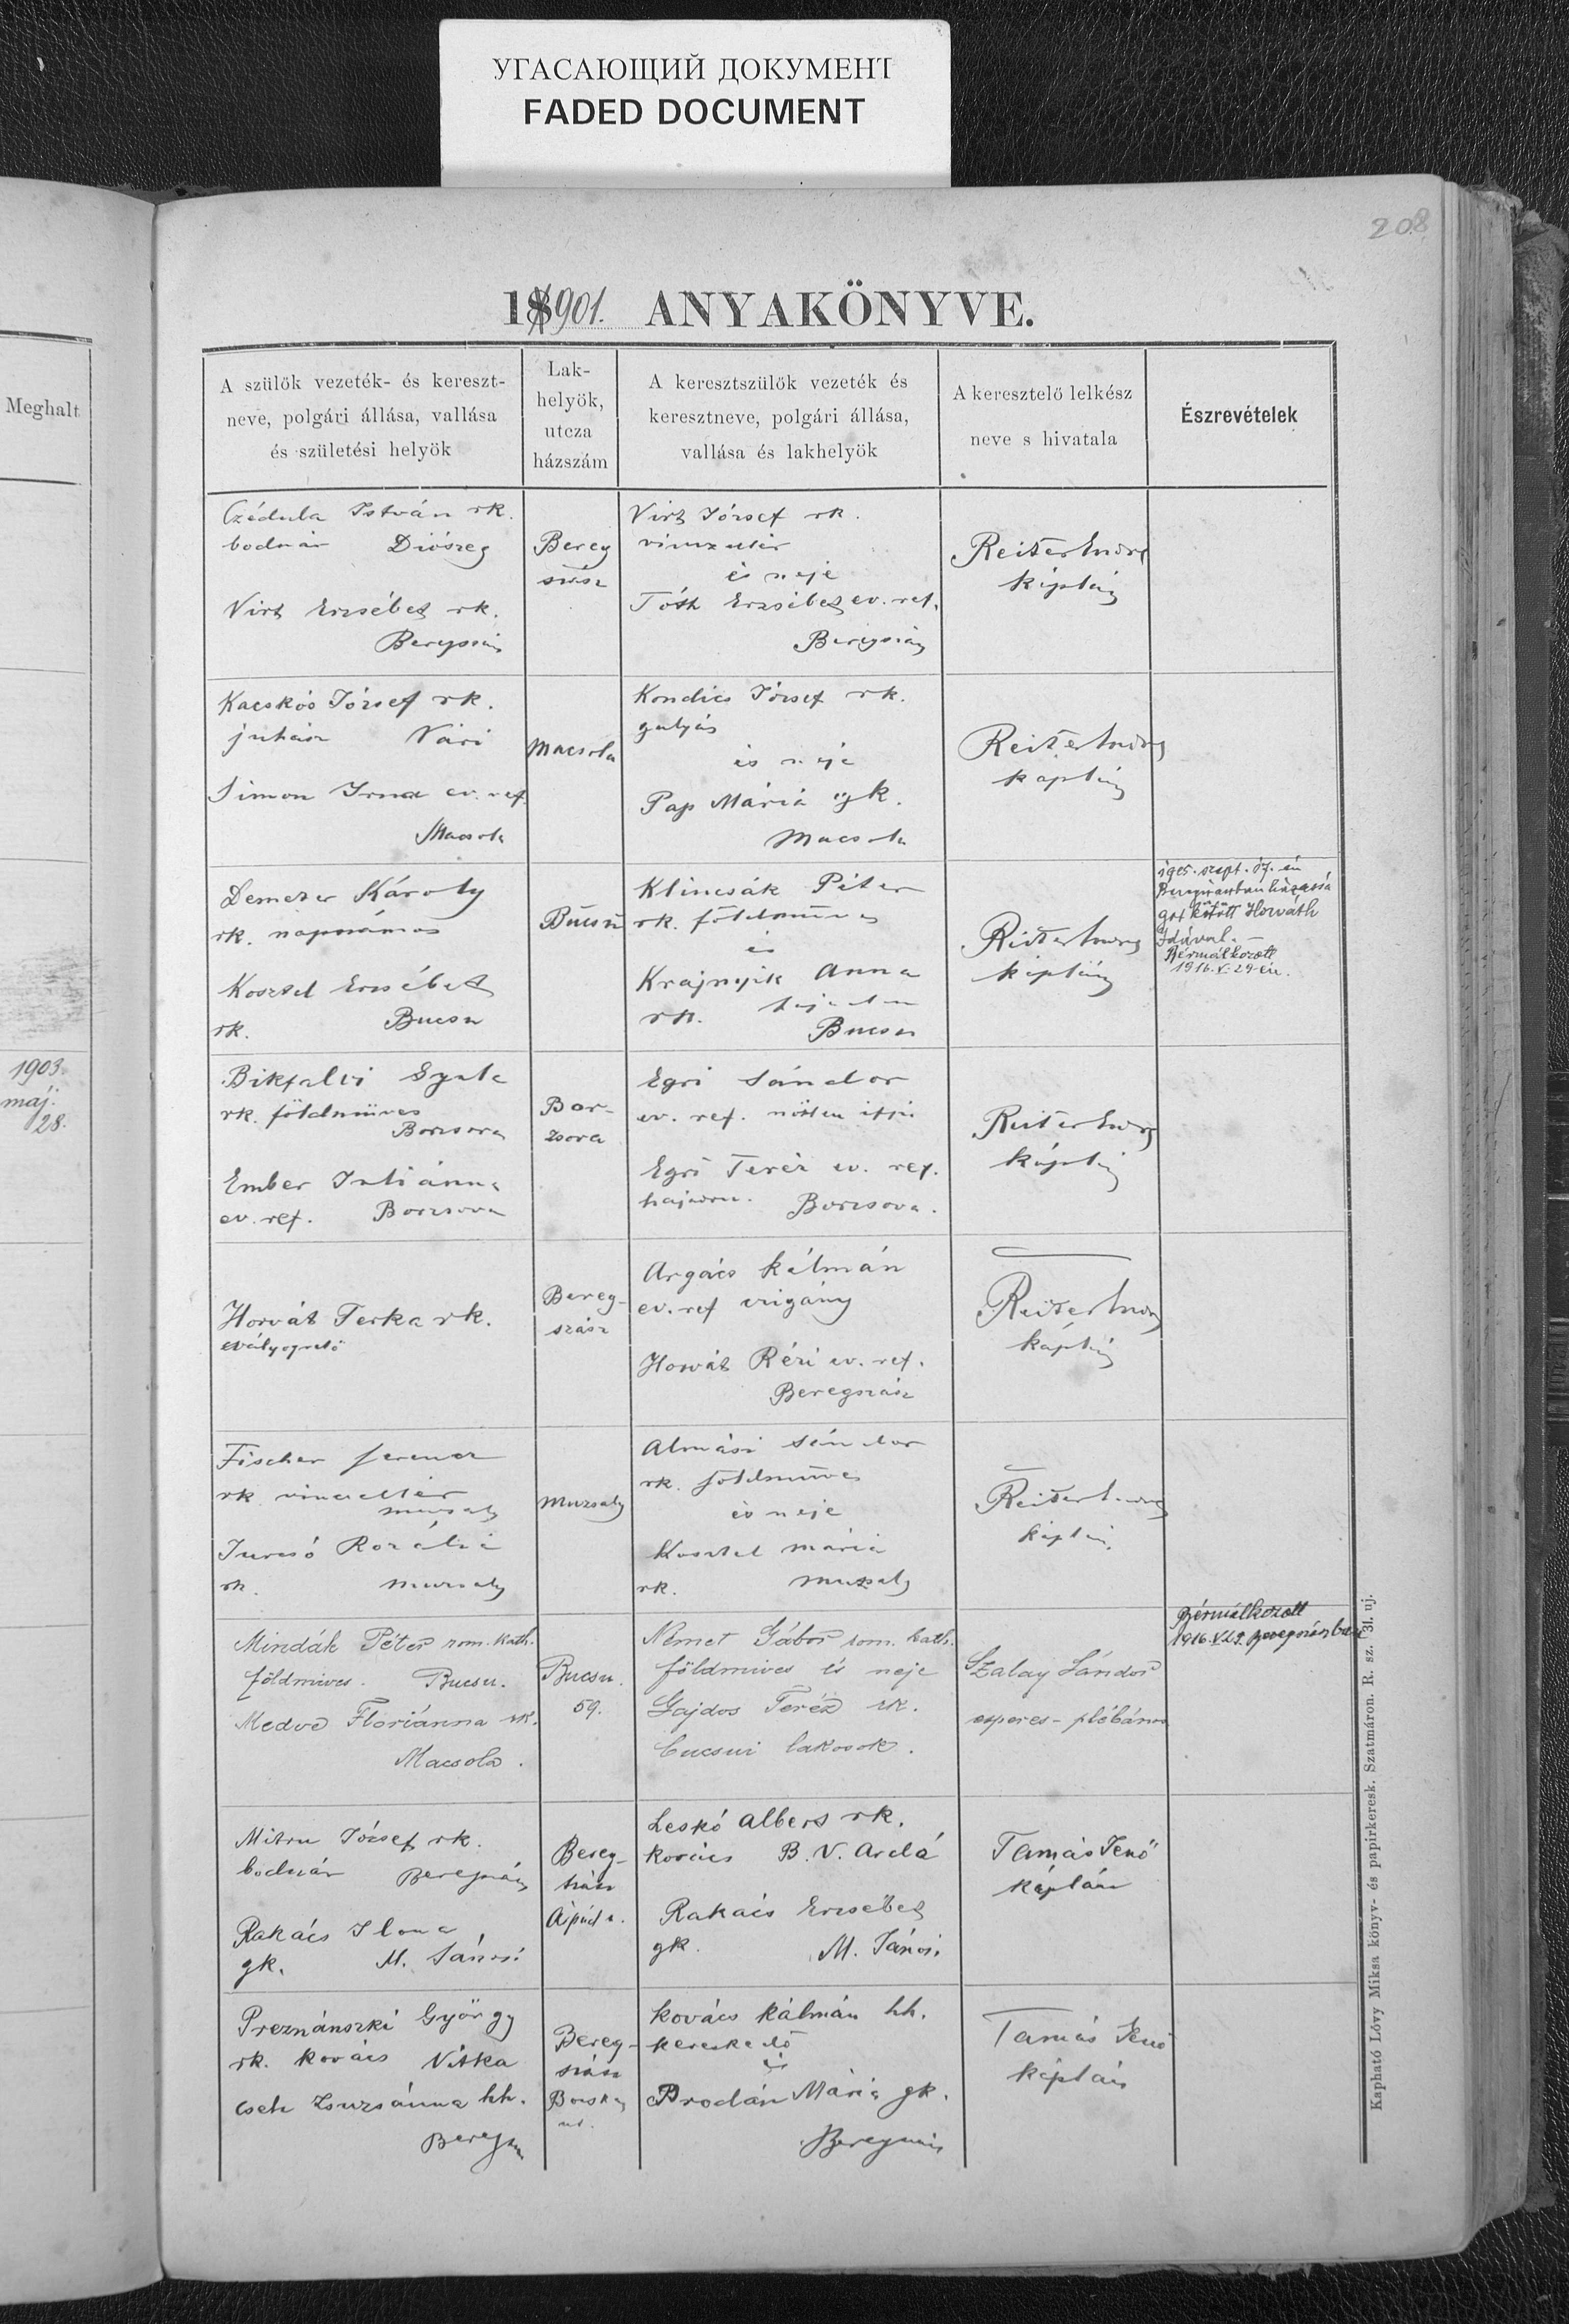 УГАСАЮЩИЙ ДОКУМЕНТ
FADED DOCUMENT
208
1901. ANYAKÖNYVE.
Meghalt
A szülők vezeték- és kereszt-
neve, polgári állása, vallása
és születési helyök
Lak-
helyök,
utcza
házszám
A keresztszülők vezeték és
keresztneve, polgári állása,
vallása és lakhelyök
A keresztelő lelkész
neve s hivatala
Észrevételek
Czédula István rk.
bodnár Diószeg
Virt Erzsébet rk.
Beregszász
Bereg
szász
Virt József rk.
vinczellér
és neje
Tóth Erzsébet ev. ref.
Beregszász
Reiter Endre
káplán
Kacskós József rk.
juhász Vári
Simon Irma ev. ref.
Macsola
Macsola
Kondics József rk.
gulyás
és neje
Pap Mária gk.
Macsola
Reiter Endre
káplán
Demeter Károly
rk. napszámos
Kosztel Erzsébet
rk. Bucsu
Bucsu
Klincsák Péter
rk. földműves
és
Krajnyik Anna
rk. hajadon
Bucsu
Reiter Endre
káplán
szept. 17. én
Beregszászban házassá
got kötött Horváth
Idával. —
Bérmálkozott
1916. V. 29-én.
1903.
máj.
28.
Bikfalvi Gyula
rk. földmüves
Borzsova
Ember Juliánna
ev. ref. Borzsova
Bor-
zsova
Egri Sándor
ev. ref. nőtlen ifjú
Egri Teréz ev. ref.
hajadon. Borzsova.
Reiter Endre
káplán
Horvát Terka rk.
vályogvető
Bereg-
szász
Argács Kálmán
ev. ref czigány
Horvát Rézi ev. ref.
Beregszász
Reiter Endre
káplán
Fischer Ferencz
rk vinczellér
Muzsaly
Jurcsó Rozália
rk. Muzsaly
Muzsaly
Almási Sándor
rk. földműves
és neje
Kosztel Mária
rk. Muzsaly
Reiter Endre
káplán.
Mindák Péter rom. kath.
földmives. Bucsu.
Medve Floriánna rk.
Macsola.
Bucsu.
59.
Német Gábor rom. kath.
földmives és neje
Gajdos Teréz rk.
bucsui lakosok.
Szalay Sándor
esperes-plébános
Bérmálkozott
1916. V. 29. Beregszászban
Mitru József rk.
bodnár Beregszász
Rakács Ilona
gk. M. Jánosi
Bereg-
szász
Leskó Albert rk.
kovács B. V. Ardó
Rakács Erzsébet
gk. M. Jánosi
Tamás Jenő
káplán
Preznánszki György
rk. kovács Vitka
Cseh Zsuzsánna hh.
Beregsz
Bereg-
szász
Bocskay
ut.
Kovács Kálmán hh.
kereskedő
és
Prodán Mária gk.
Beregszász
Tamás Jenő
káplán
Kapható Lővy Miksa könyv- és papirkeresk. Szatmáron. R. sz. 3l. uj.